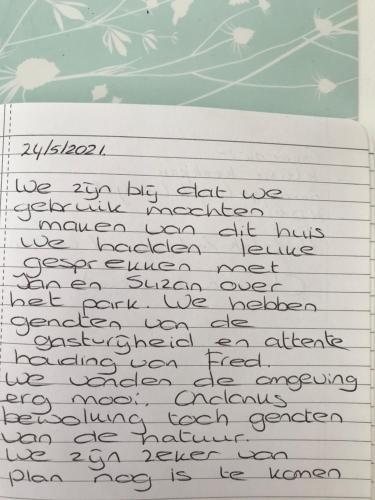 24/5/2021.
We zijn blij dat we
gebruik mochten
maken van dit huis
We hadden leuke
gesprekken met
Jan en Suzan over
het park. We hebben
genoten van de
gastvrijheid en attente
houding van Fred.
We vonden de omgeving
erg mooi. Ondanks
bewolking toch genoten
van de natuur.
We zijn zeker van
plan nog is te komen